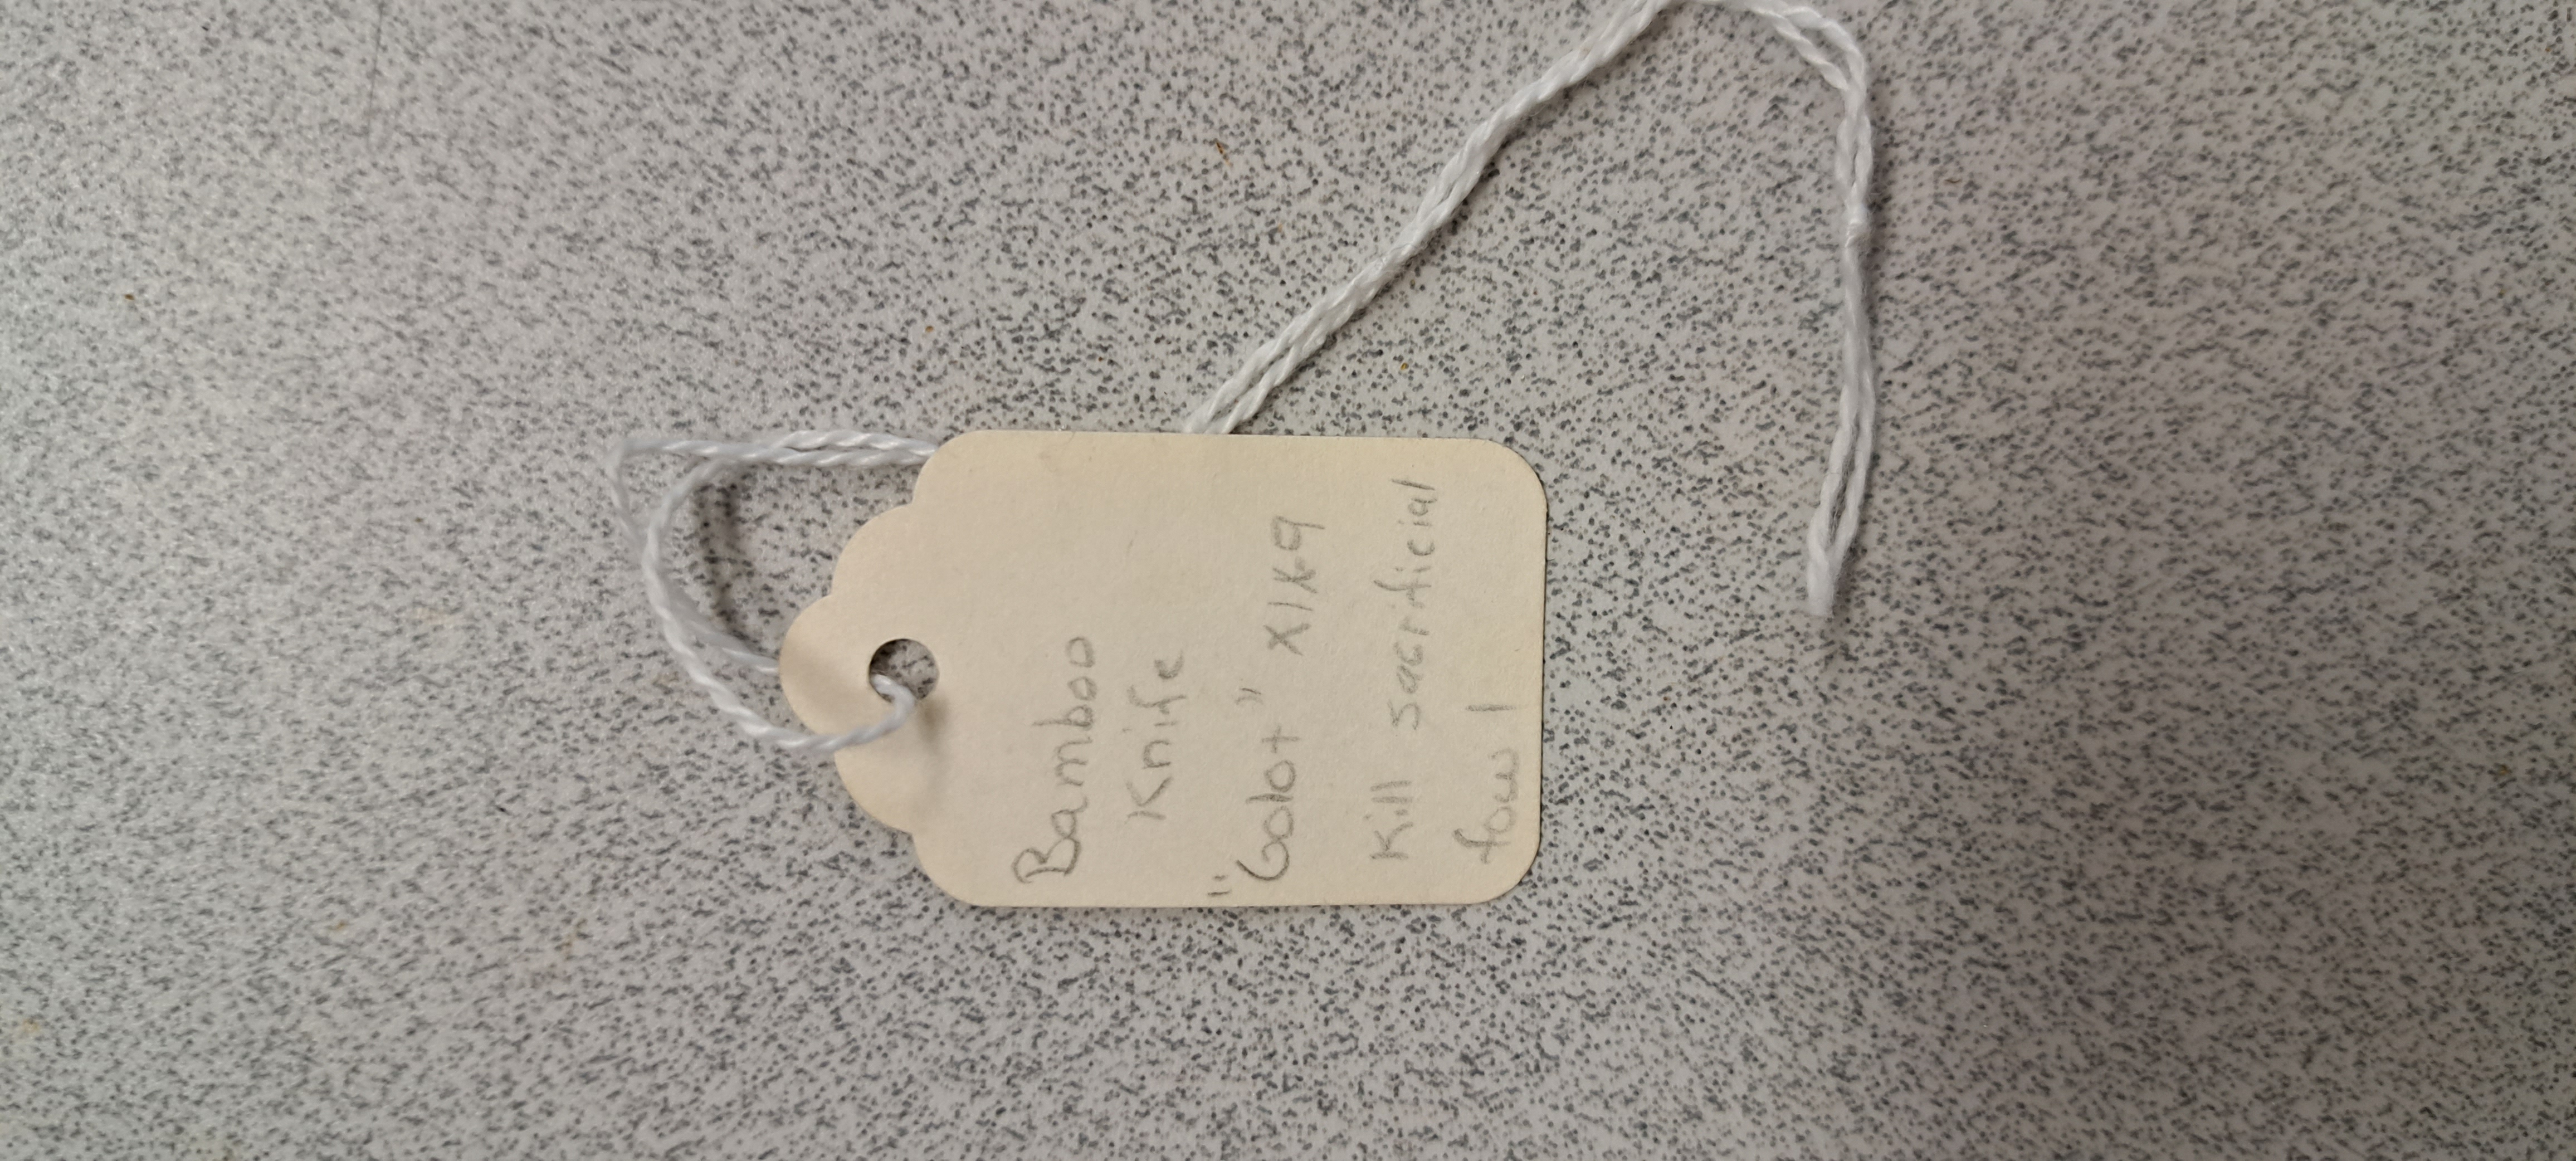 Bamboo
Knife
"Golot" XIX-9
Kill sacrificial
fowl